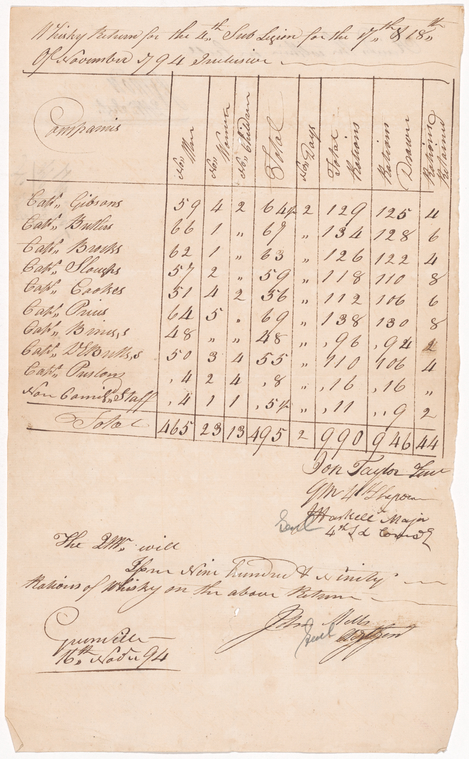 Whisky Return for the 4th Sub Legion for the 17th & 18th
Of November 1794 Inclusive
Companies | No. Men | No. Women | No. Children | Total | No. Days | Total Rations | Rations Drawn | Rations Retained
Capt. Gibsons 59 4 2 64½ 2 129 125 4
Capt. Butlers 66 1 " 67 " 134 128 6
Capt. Brocks 62 1 " 63 " 126 122 4
Capt. Sloughs 57 2 " 59 " 118 110 8
Capt. Cookes 51 4 2 56 " 112 106 6
Capt. Prices 64 5 " 69 " 138 130 8
Capt. 48 " " 48 " 96 94 2
Capt. DeButts,s 50 3 4 55 " 110 106 4
Capt. Paslons 4 2 4 8 " 16 16 "
Non Comd. Staff 4 1 1 5½ " 11 9 2
Total 465 23 13 495 2 990 946 44
Jon Taylor Lieut
QM 4th
Haskell Major
4th S L Comdt
The QMr. will
Issue Nine Hundred & Ninety
Rations of Whisky on the above Return
John Mills
Greenville
16th Novr. 94